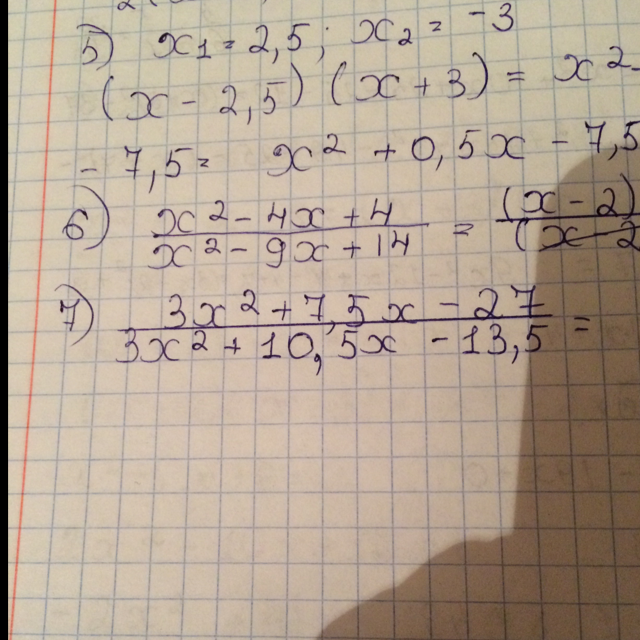 5) x₁ = 2,5; x₂ = -3
(x - 2,5) (x + 3) = x² -
- 7,5 = x² + 0,5x - 7,5
6) x² - 4x + 4 = (x - 2)
x² - 9x + 14 (x - 2
7) 3x² + 7,5x - 27
3x² + 10,5x - 13,5 =